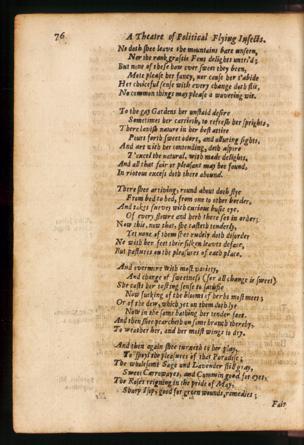 76 A Theatre of Political Flying Insects.
No doth shee leave the mountains bare unseen,
Nor the rank grassie Fens delights untri'd;
But none of these how ever sweet they been,
Mote please her fancy, nor cause her t'abide
Her choiceful sense with every change doth flit,
No common things may please a wavering wit.
To the gay Gardens her unstaid desire
Sometimes her carrieth, to refresh her sprights,
There lavish nature in her best attire
Pours forth sweet odors, and alluring sights,
And art with her contending, doth aspire
T'excel the natural, with made delights,
And all that fair or pleasant may bee found,
In riotous excess doth there abound.
There shee arriving, round about doth flye
From bed to bed, from one to other border,
And takes survey with curious busie eye,
Of every flower and herb there set in order;
Now this, now that, she tasteth tenderly,
Yet none of them shee rudely doth disorder
Ne with her feet their silken leaves deface,
But pastures on the pleasures of each place.
And evermore with most variety,
And change of sweetness (for all change is sweet)
She casts her testing sense to satisfie
Now sucking of the bloom of herbs most meet;
Or of the dew, which yet on them doth lye
Now in the same bathing her tender feet.
And then shee pearcheth on som branch thereby,
To weather her, and her moist wings to dry.
And then again shee turneth to her play,
To spoyl the pleasures of that Paradise;
The wholesome Sage and Lavender still gray,
Sweet Carrowayes, and Cummin good for eyes,
The Roses reigning in the pride of May,
Sharp Isop, good for green wounds, remedies;
Fair